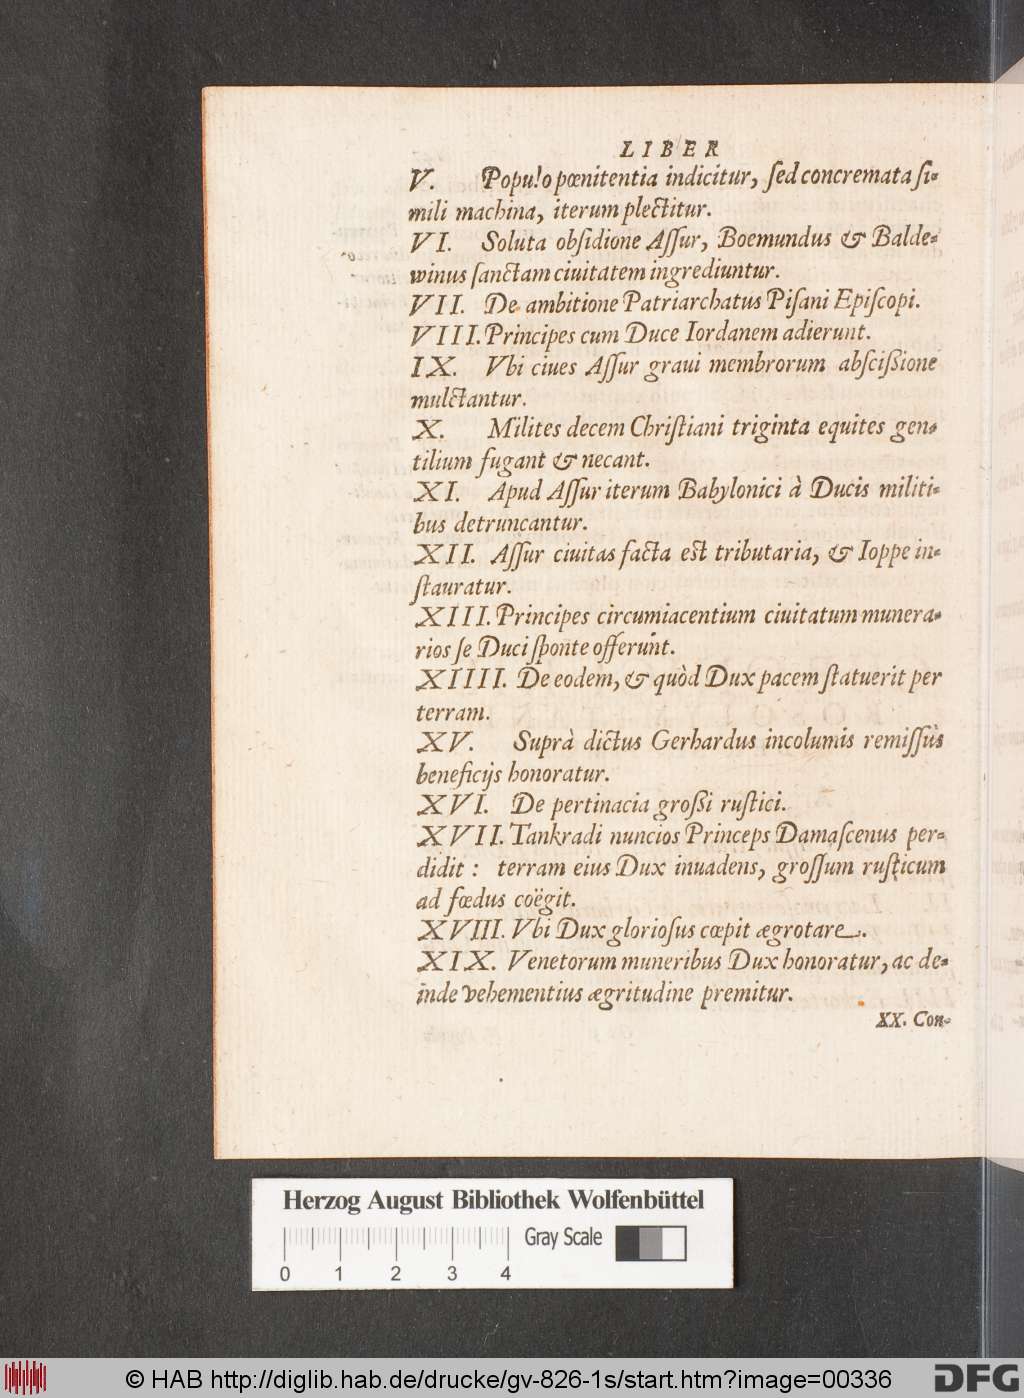 LIBER
V. Populo pœnitentia indicitur, ſed concremata ſi-
mili machina, iterum plectitur.
VI. Soluta obſidione Aſſur, Boemundus & Balde-
winus ſanctam ciuitatem ingrediuntur.
VII. De ambitione Patriarchatus Piſani Epiſcopi.
VIII. Principes cum Duce Iordanem adierunt.
IX. Vbi ciues Aſſur graui membrorum abſcißione
mulctantur.
X. Milites decem Chriſtiani triginta equites gen-
tilium fugant & necant.
XI. Apud Aſſur iterum Babylonici à Ducis militi-
bus detruncantur.
XII. Aſſur ciuitas facta est tributaria, & Ioppe in-
ſtauratur.
XIII. Principes circumiacentium ciuitatum munera-
rios ſe Duci ſponte offerunt.
XIIII. De eodem, & quòd Dux pacem ſtatuerit per
terram.
XV. Suprà dictus Gerhardus incolumis remiſſus
beneficijs honoratur.
XVI. De pertinacia großi ruſtici.
XVII. Tankradi nuncios Princeps Damaſcenus per-
didit : terram eius Dux inuadens, groſſum ruſticum
ad fœdus coëgit.
XVIII. Vbi Dux glorioſus cœpit ægrotare.
XIX. Venetorum muneribus Dux honoratur, ac de-
inde vehementius ægritudine premitur.
XX. Con-
Herzog August Bibliothek Wolfenbüttel
Gray Scale
0 1 2 3 4
© HAB http://diglib.hab.de/drucke/gv-826-1s/start.htm?image=00336
DFG